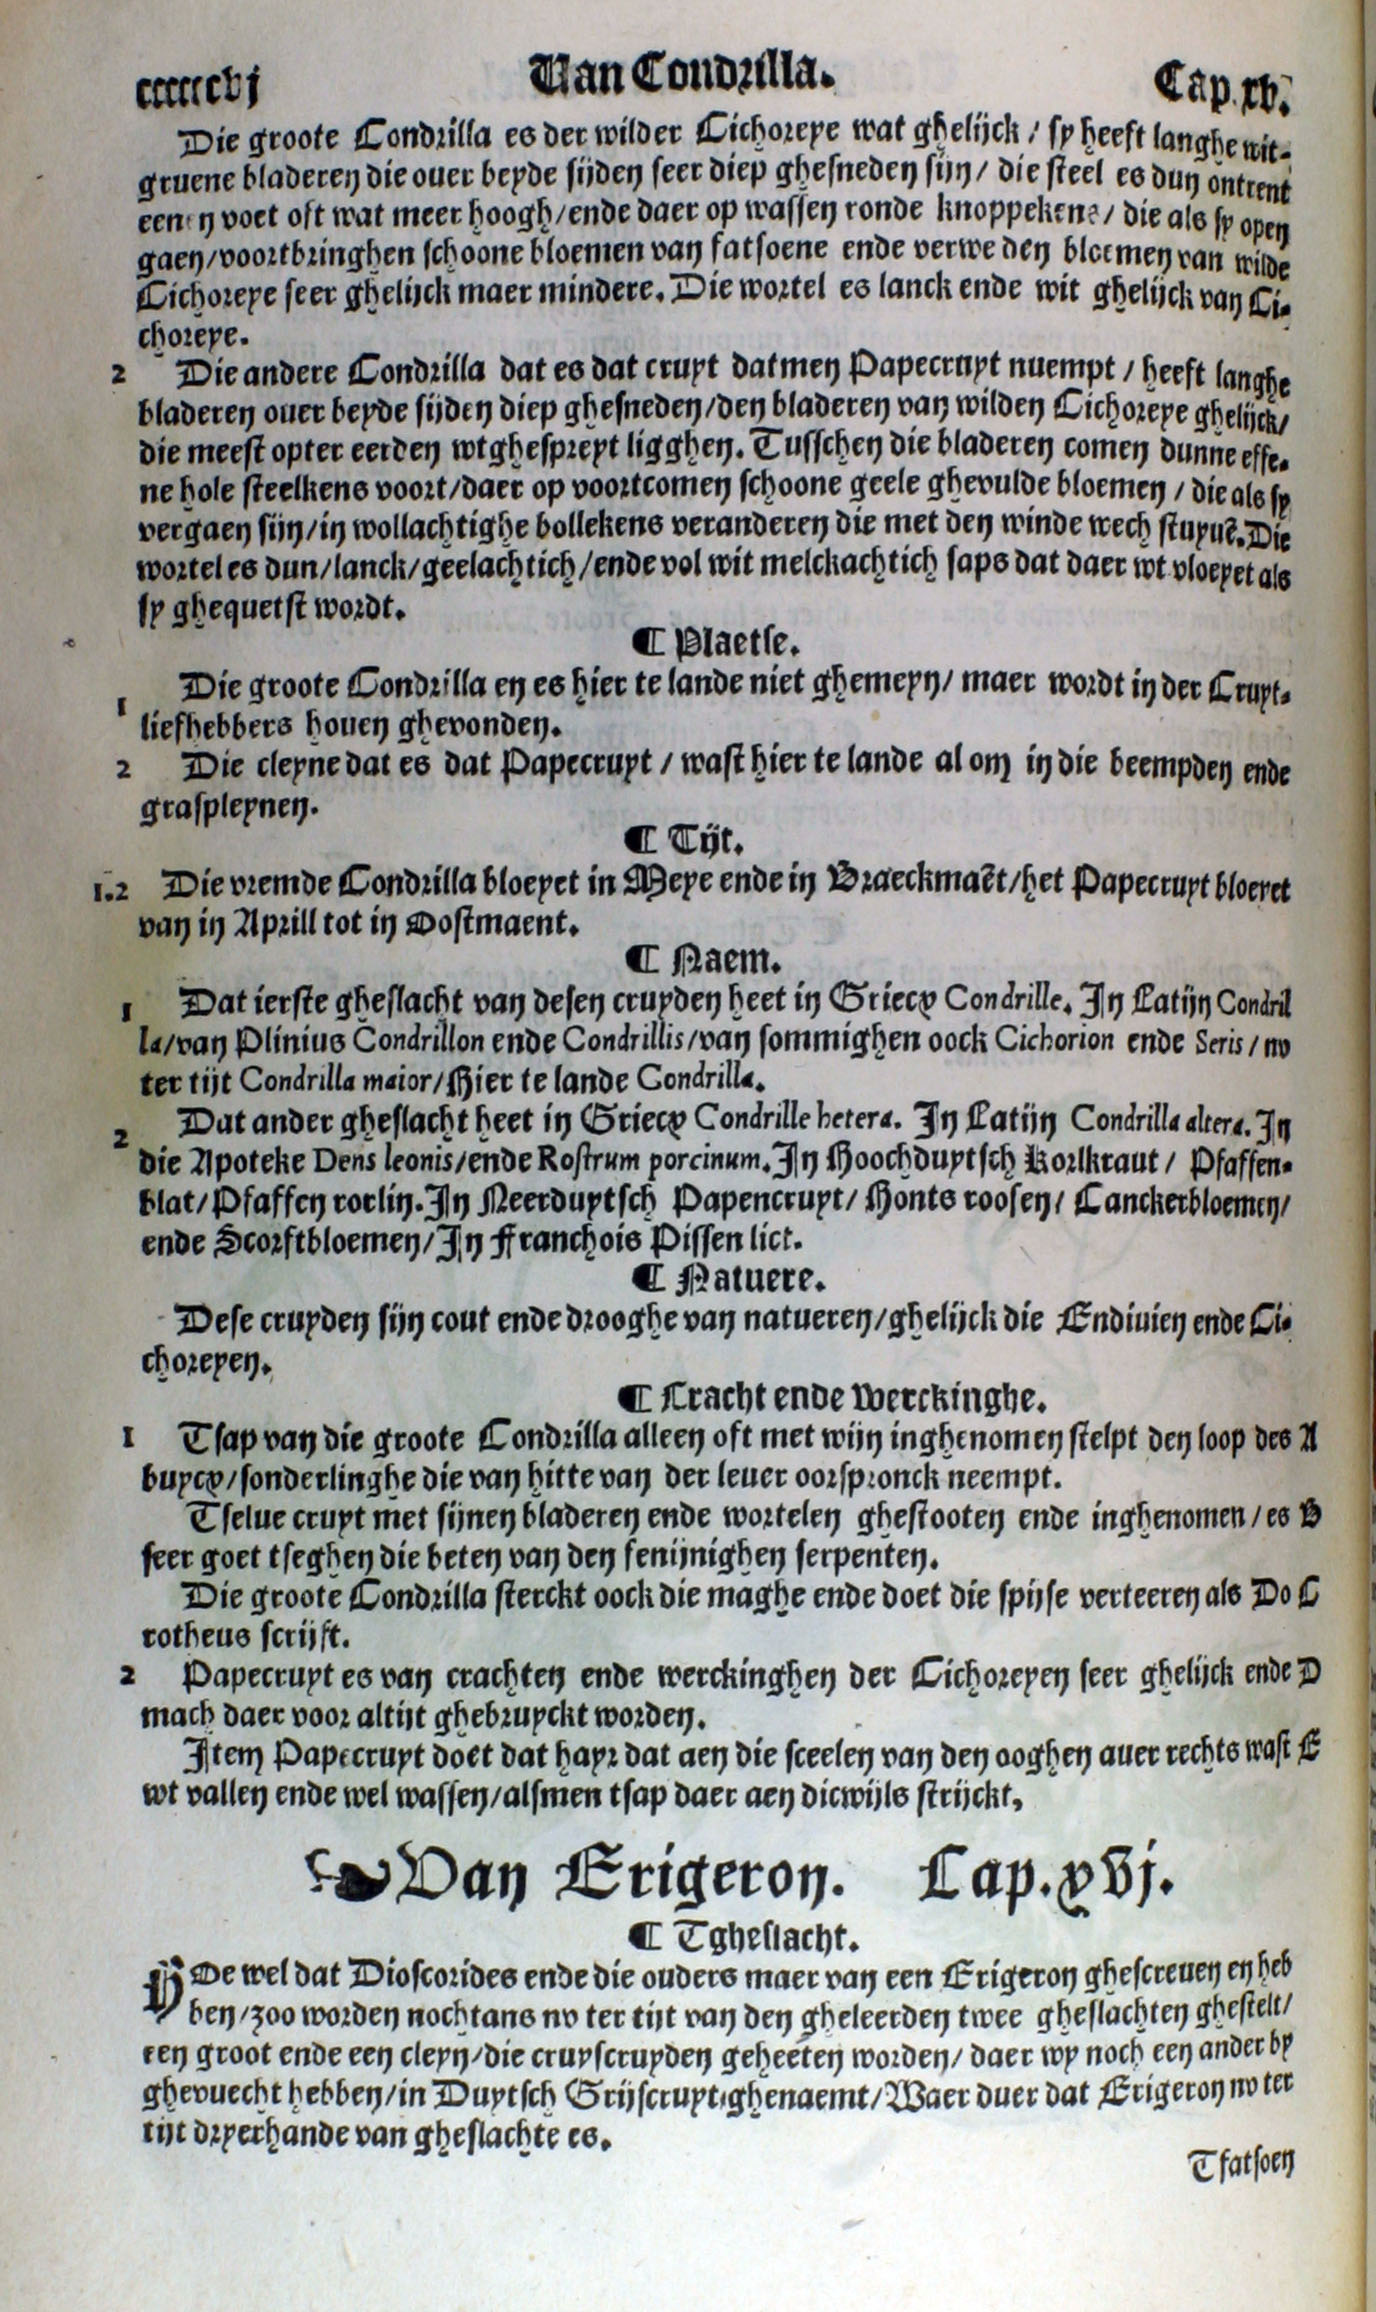 ccccccvj Van Condrilla. Cap. xv.
Die groote Condrilla es der wilder Cichoreye wat ghelijck / sy heeft langhe wit-
gruene bladeren die ouer beyde sijden seer diep ghesneden sijn / die steel es dun ontrent
eenen voet oft wat meer hoogh / ende daer op wassen ronde knoppekens / die als sy open
gaen / voortbringhen schoone bloemen van fatsoene ende verwe den bloemen van wilde
Cichoreye seer ghelijck maer mindere. Die wortel es lanck ende wit ghelijck van Ci-
choreye.
2 Die andere Condrilla dat es dat cruyt datmen Papecruyt nuempt / heeft langhe
bladeren ouer beyde sijden diep ghesneden / den bladeren van wilden Cichoreye ghelijck /
die meest opter eerden wtghespreyt ligghen. Tusschen die bladeren comen dunne effe-
ne hole steelkens voort / daer op voortcomen schoone geele ghevulde bloemen / die als sy
vergaen sijn / in wollachtighe bollekens veranderen die met den winde wech stuyuē. Die
wortel es dun / lanck / geelachtich / ende vol wit melckachtich saps dat daer wt vloeyet als
sy ghequetst wordt.
¶ Plaetse.
1 Die groote Condrilla en es hier te lande niet ghemeyn / maer wordt in der Cruyt-
liefhebbers houen ghevonden.
2 Die cleyne dat es dat Papecruyt / wast hier te lande al om in die beempden ende
graspleynen.
¶ Tijt.
1.2 Die vremde Condrilla bloeyet in Meye ende in Braeckmaēt / het Papecruyt bloeyet
van in Aprill tot in Oostmaent.
¶ Naem.
1 Dat ierste gheslacht van desen cruyden heet in Griecx Condrille. In Latijn Condril
la / van Plinius Condrillon ende Condrillis / van sommighen oock Cichorion ende Seris / nv
ter tijt Condrilla maior / Hier te lande Condrilla.
2 Dat ander gheslacht heet in Griecx Condrille hetera. In Latijn Condrilla altera. In
die Apoteke Dens leonis / ende Rostrum porcinum. In Hoochduytsch Korlkraut / Pfaffen-
blat / Pfaffen rorlin. In Neerduytsch Papencruyt / Honts roosen / Canckerbloemen /
ende Scorftbloemen / In Franchois Pissen lict.
¶ Natuere.
Dese cruyden sijn cout ende drooghe van natueren / ghelijck die Endiuien ende Ci-
choreyen.
¶ Cracht ende Werckinghe.
1 Tsap van die groote Condrilla alleen oft met wijn inghenomen stelpt den loop des A
buycx / sonderlinghe die van hitte van der leuer oorspronck neempt.
Tselue cruyt met sijnen bladeren ende wortelen ghestooten ende inghenomen / es B
seer goet tseghen die beten van den fenijnighen serpenten.
Die groote Condrilla sterckt oock die maghe ende doet die spijse verteeren als Do C
rotheus scrijft.
2 Papecruyt es van crachten ende werckinghen der Cichoreyen seer ghelijck ende D
mach daer voor altijt ghebruyckt worden.
Item Papecruyt doet dat hayr dat aen die sceelen van den ooghen auer rechts wast E
wt vallen ende wel wassen / alsmen tsap daer aen dicwijls strijckt,
Van Erigeron. Cap. xvj.
¶ Tgheslacht.
HOe wel dat Dioscorides ende die ouders maer van een Erigeron ghescreuen en heb
ben / zoo worden nochtans nv ter tijt van den gheleerden twee gheslachten ghestelt /
een groot ende een cleyn / die cruyscruyden geheeten worden / daer wy noch een ander by
ghevuecht hebben / in Duytsch Grijscruyt ghenaemt / Waer duer dat Erigeron nv ter
tijt dryerhande van gheslachte es.
Tfatsoen